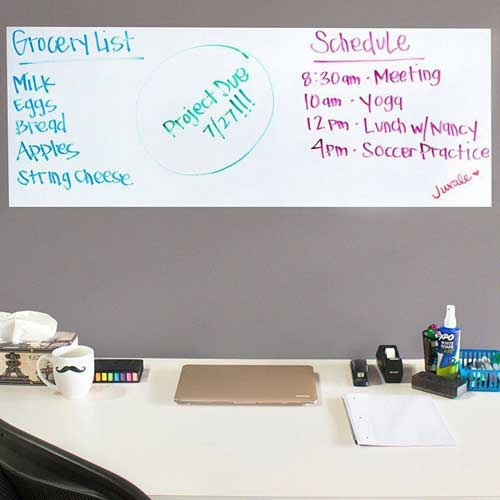 Grocery List
Milk
Eggs
Bread
Apples
String Cheese
Project Due
7/27!!!
Schedule
8:30am · Meeting
10am · Yoga
12pm · Lunch w/Nancy
4pm · Soccer Practice
EXPO